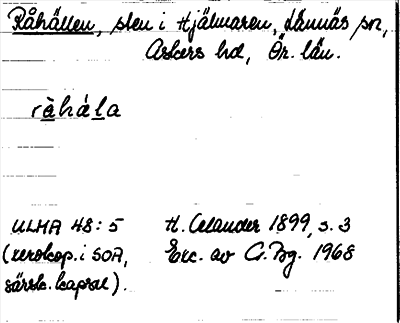 Råhällen, sten i Hjälmaren, Lännäs sn,
Askers hd, Ör. län.
ràhála
ULMA 48:5 H. Celander 1899, s. 3
(xerokop. i SOA, Exc. av C. Bg. 1968
särsk. kapsel).